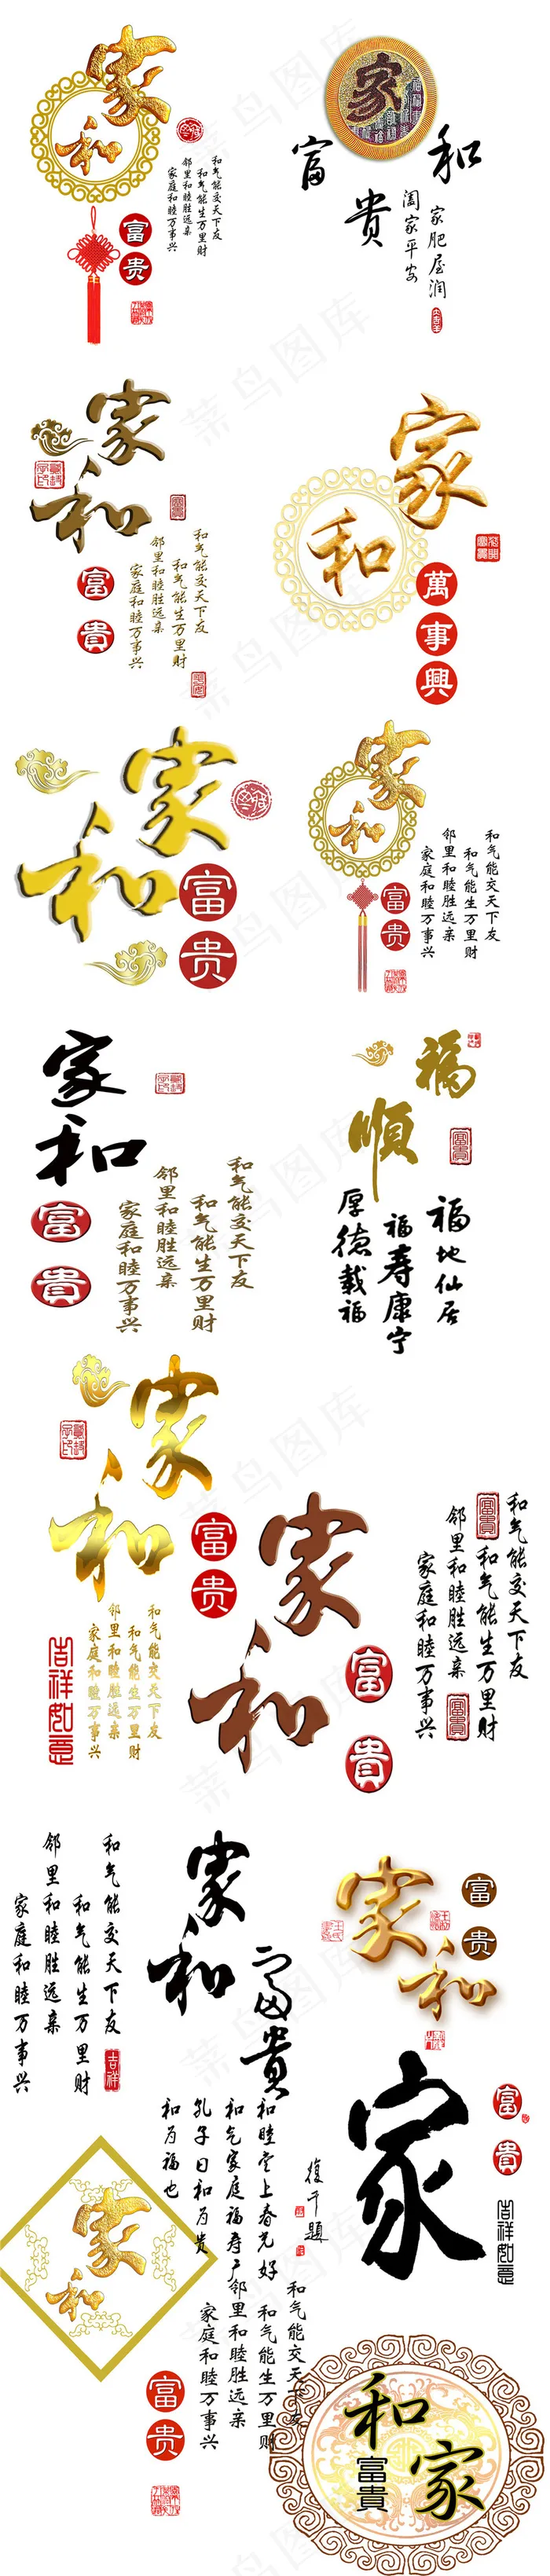 家和
富贵
和气能交天下友
和气能生万里财
邻里和睦胜远亲
家庭和睦万事兴
家
富貴和
家肥屋润
阖家平安
家和
富貴
和气能交天下友
和气能生万里财
邻里和睦胜远亲
家庭和睦万事兴
家和
萬事興
家和
富贵
家和
富贵
和气能交天下友
和气能生万里财
邻里和睦胜远亲
家庭和睦万事兴
家和
富貴
和气能交天下友
和气能生万里财
邻里和睦胜远亲
家庭和睦万事兴
福順
富貴
福地仙居
福寿康宁
厚德载福
家和
富贵
和气能交天下友
和气能生万里财
邻里和睦胜远亲
家庭和睦万事兴
吉祥如意
家和
富貴
和气能交天下友
富貴
和气能生万里财
邻里和睦胜远亲
富貴
家庭和睦万事兴
和气能交天下友
吉祥
和气能生万里财
邻里和睦胜远亲
家庭和睦万事兴
家和
富貴
和睦堂上春光好
和气家庭福寿广
孔子曰和为贵
和为福也
家和
富贵
家
富貴
吉祥如意
家和
富贵
和气能交天下友
和气能生万里财
邻里和睦胜远亲
家庭和睦万事兴
和家
富貴
菜鸟图库